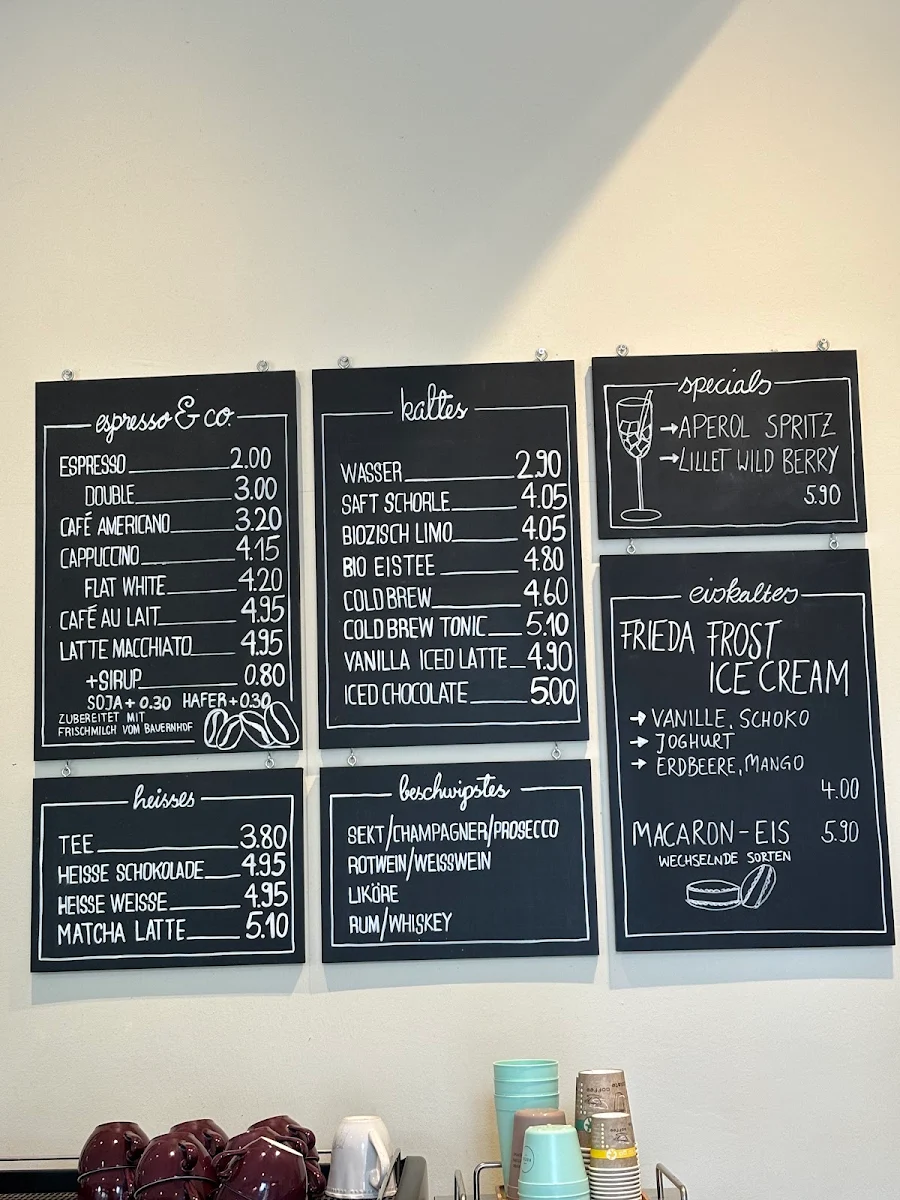 espresso & co.
ESPRESSO 2.00
DOUBLE 3.00
CAFÉ AMERICANO 3.20
CAPPUCCINO 4.15
FLAT WHITE 4.20
CAFÉ AU LAIT 4.95
LATTE MACCHIATO 4.95
+SIRUP 0.80
SOJA + 0.30 HAFER + 0.30
ZUBEREITET MIT
FRISCHMILCH VOM BAUERNHOF
heisses
TEE 3.80
HEISSE SCHOKOLADE 4.95
HEISSE WEISSE 4.95
MATCHA LATTE 5.10
kaltes
WASSER 2.90
SAFT SCHORLE 4.05
BIOZISCH LIMO 4.05
BIO EISTEE 4.80
COLD BREW 4.60
COLD BREW TONIC 5.10
VANILLA ICED LATTE 4.90
ICED CHOCOLATE 5.00
beschwipstes
SEKT/CHAMPAGNER/PROSECCO
ROTWEIN/WEISSWEIN
LIKÖRE
RUM/WHISKEY
specials
→APEROL SPRITZ
→LILLET WILD BERRY
5.90
eiskaltes
FRIEDA FROST
ICE CREAM
→ VANILLE, SCHOKO
→ JOGHURT
→ ERDBEERE, MANGO
4.00
MACARON-EIS 5.90
WECHSELNDE SORTEN
coffee